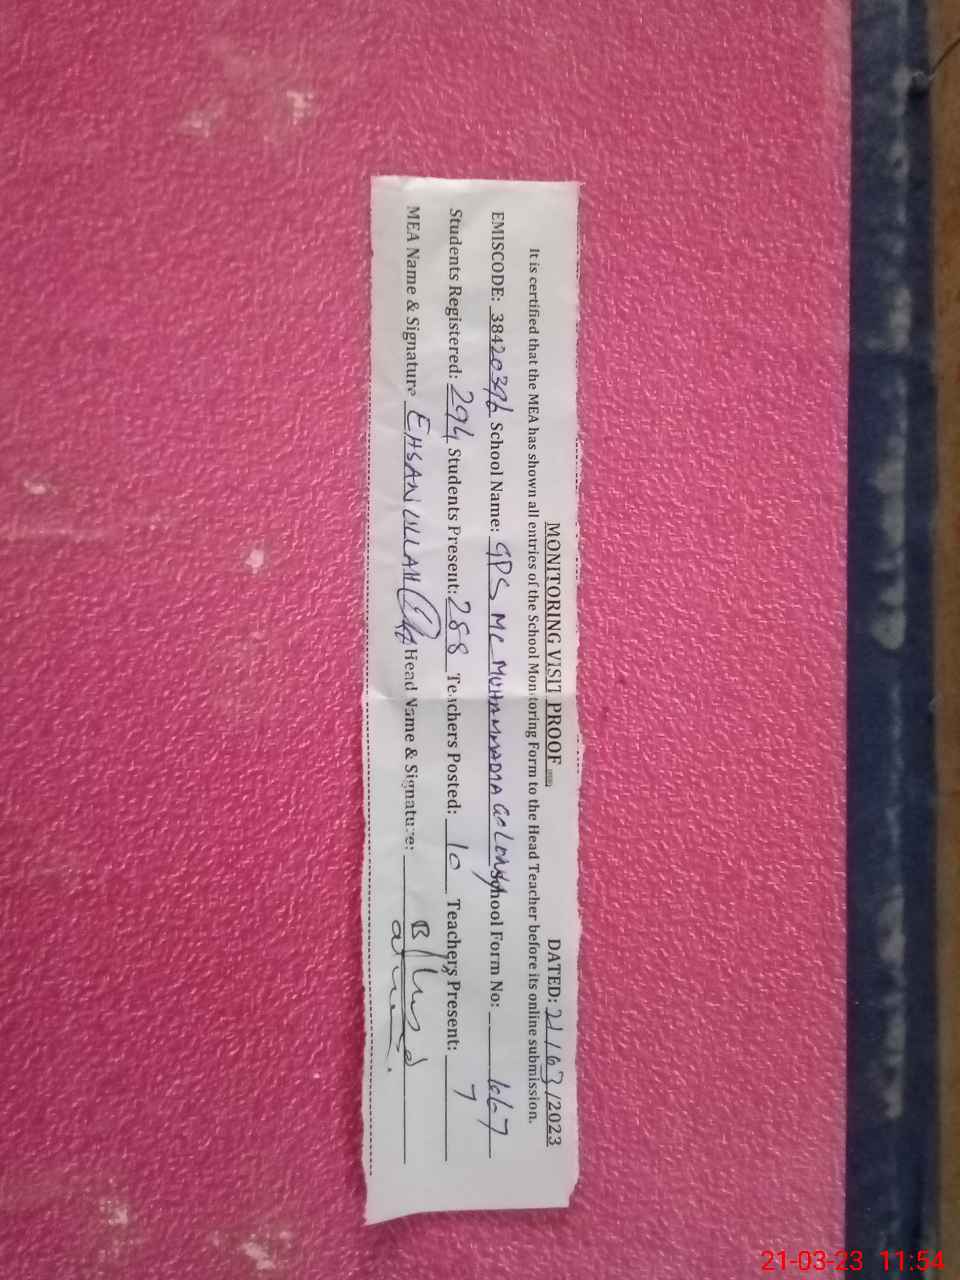 MONITORING VISIT PROOF DATED: 21/03/2023
It is certified that the MEA has shown all entries of the School Monitoring Form to the Head Teacher before its online submission.
EMISCODE: 38420396 School Name: GPS MC MUHAMMADIA COLONY School Form No: 1667
Students Registered: 294 Students Present: 288 Teachers Posted: 10 Teachers Present: 7
MEA Name & Signature EHSAN ULLAH Head Name & Signature:
21-03-23 11:54